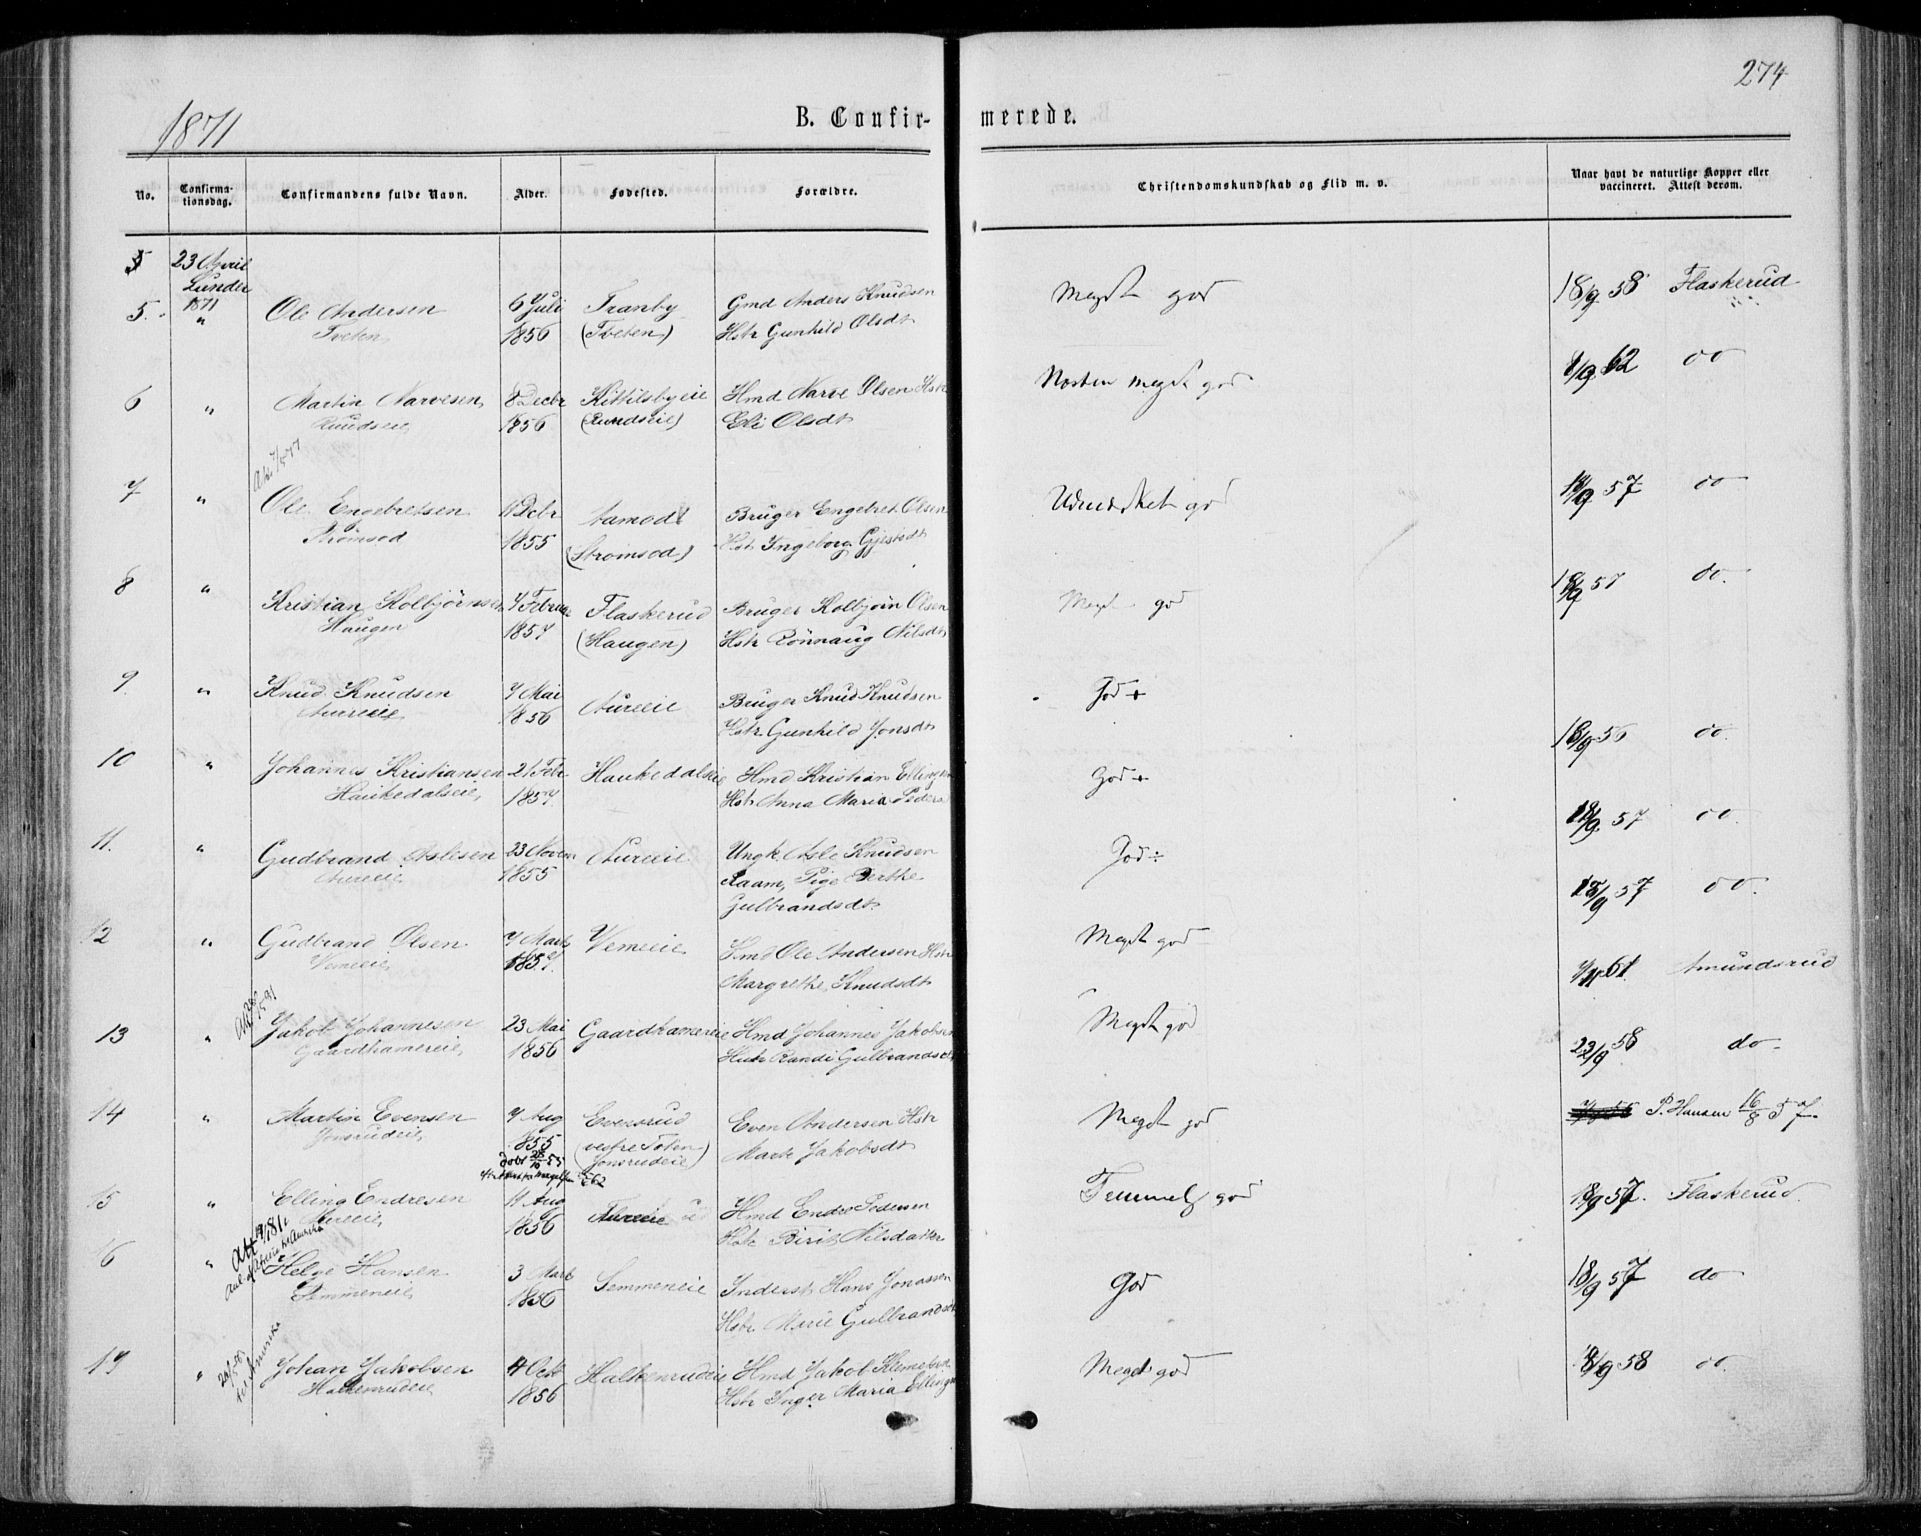 274
1871
B. Confir-
merede.
No.
Confirma-
tionsdag.
Confirmandens fulde Navn.
Alder.
Fødested.
Forældre.
Christendomskundskab og Flid m. v.
Naar havt de naturlige Kopper eller
vaccineret. Attest derom.
23 April
Lunder
1871
5. " Ole Andersen 6 Juli Tranby Gmd Anders Knudsen Meget god 18/9 58 Flaskerud
Tveten 1856 (Tveten) Hstr Gunhild Olsdt
6 " Martin Narvesen 8 Decbr Kittilsbyeie Hmd Narve Olsen Hstr Næsten meget god 8/9 62 do
Ruudseie 1856 (Ruudseie) Eli Olsdt
7 " Ole Engebretsen 11 Decbr Aamodt Bruger Engebret Olsen Udmærket god 18/9 57 do
Strömsod 1855 (Strömsod) Hstr Ingeborg
8 " Kristian Kolbjörnsen 7 Februar Flaskerud Bruger Kolbjörn Olsen Meget god 18/9 57 do.
Haugen 1857 (Haugen) Hstr Rönnaug Nilsdt
9 " Knud Knudsen 7 Mai Aureeie Bruger Knud Knudsen God + 18/9 56 do.
Aureeie 1856 Hstr Gunhild Jonsdt
10 " Johannes Kristiansen 21 Febr Haukedalseie Hmd Kristian Ellingsen God + 18/9 57 do.
Haukedalseie 1857. Hstr Anna Maria Peders
11. " Gudbrand Aslesen 23 Novem Aureeie Ungk. Asle Knudsen God ÷ 18/9 57 do.
Aureeie 1855 Raam, Pige Berthe
Gulbrandsdt.
12 " Gudbrand Olsen 7 Marts Vemeeie Hmd Ole Andersen Hstr Meget god 4/11 61. Amundsrud
Vemeeie 1857. Margrethe Knudsdt
13 " Jakob Johannesen 23 Mai Gaardhamereie Hmd Johannes Jakobsen Meget god 22/9 58 do.
Gaardhamereie 1856 Hstr Randi Gulbrandsdt
14 " Martin Evensen 7 Aug Evensrud Even Andersen Hstr Meget god P. Hansen 16/8 57.
Jonsrudeie 1855 (vestre Toten Marte Jakobsdt
döbt 28/10 55 Jonsrudeie)
15 " Elling Endresen 11 Aug Aureeie Hmd Endre Pedersen Temmel. god 18/9 57. Flaskerud.
Aureeie 1856 Hstr Birit Nilsdatter
6 " Helge Hansen 3 Mart Semmeneie Inderst Hans Jonassen God 18/9 57 do
Semmeneie 1856 Hstr Marie Gulbrandsdt
17 " Johan Jakobsen 4 Octr Halkenrudeie Hmd Jakob Meget god 18/9 58 do.
Halkenrudeie 1856 Hstr Inger Maria Ellings